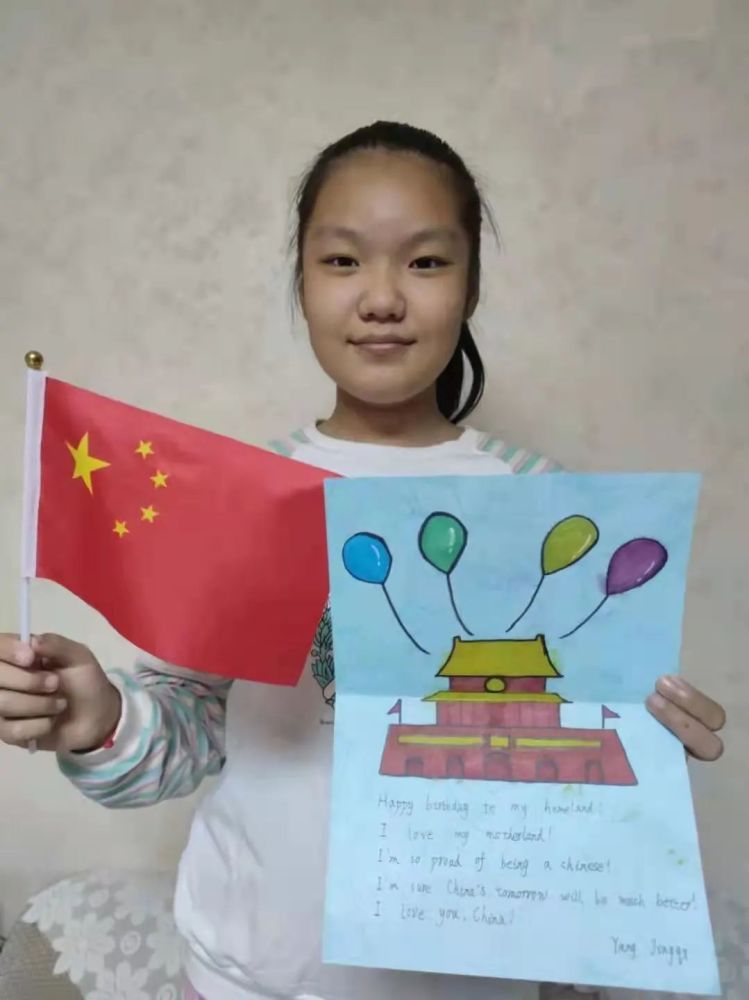 Happy birthday to my homeland!
I love my motherland!
I'm so proud of being a chinese!
I'm sure China's tomorrow will be much better!
I love you, China!
Yang